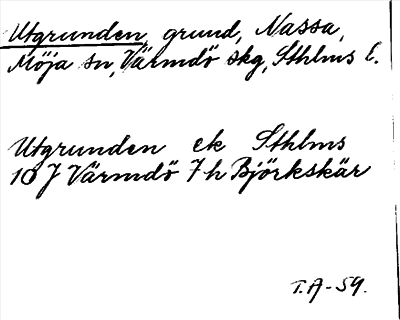 Utgrunden, grund, Nassa,
Möja sn, Värmdö skg, Sthlms l.
Utgrunden ek Sthlms
10 J Värmdö 7 h Björkskär
T.A-59.